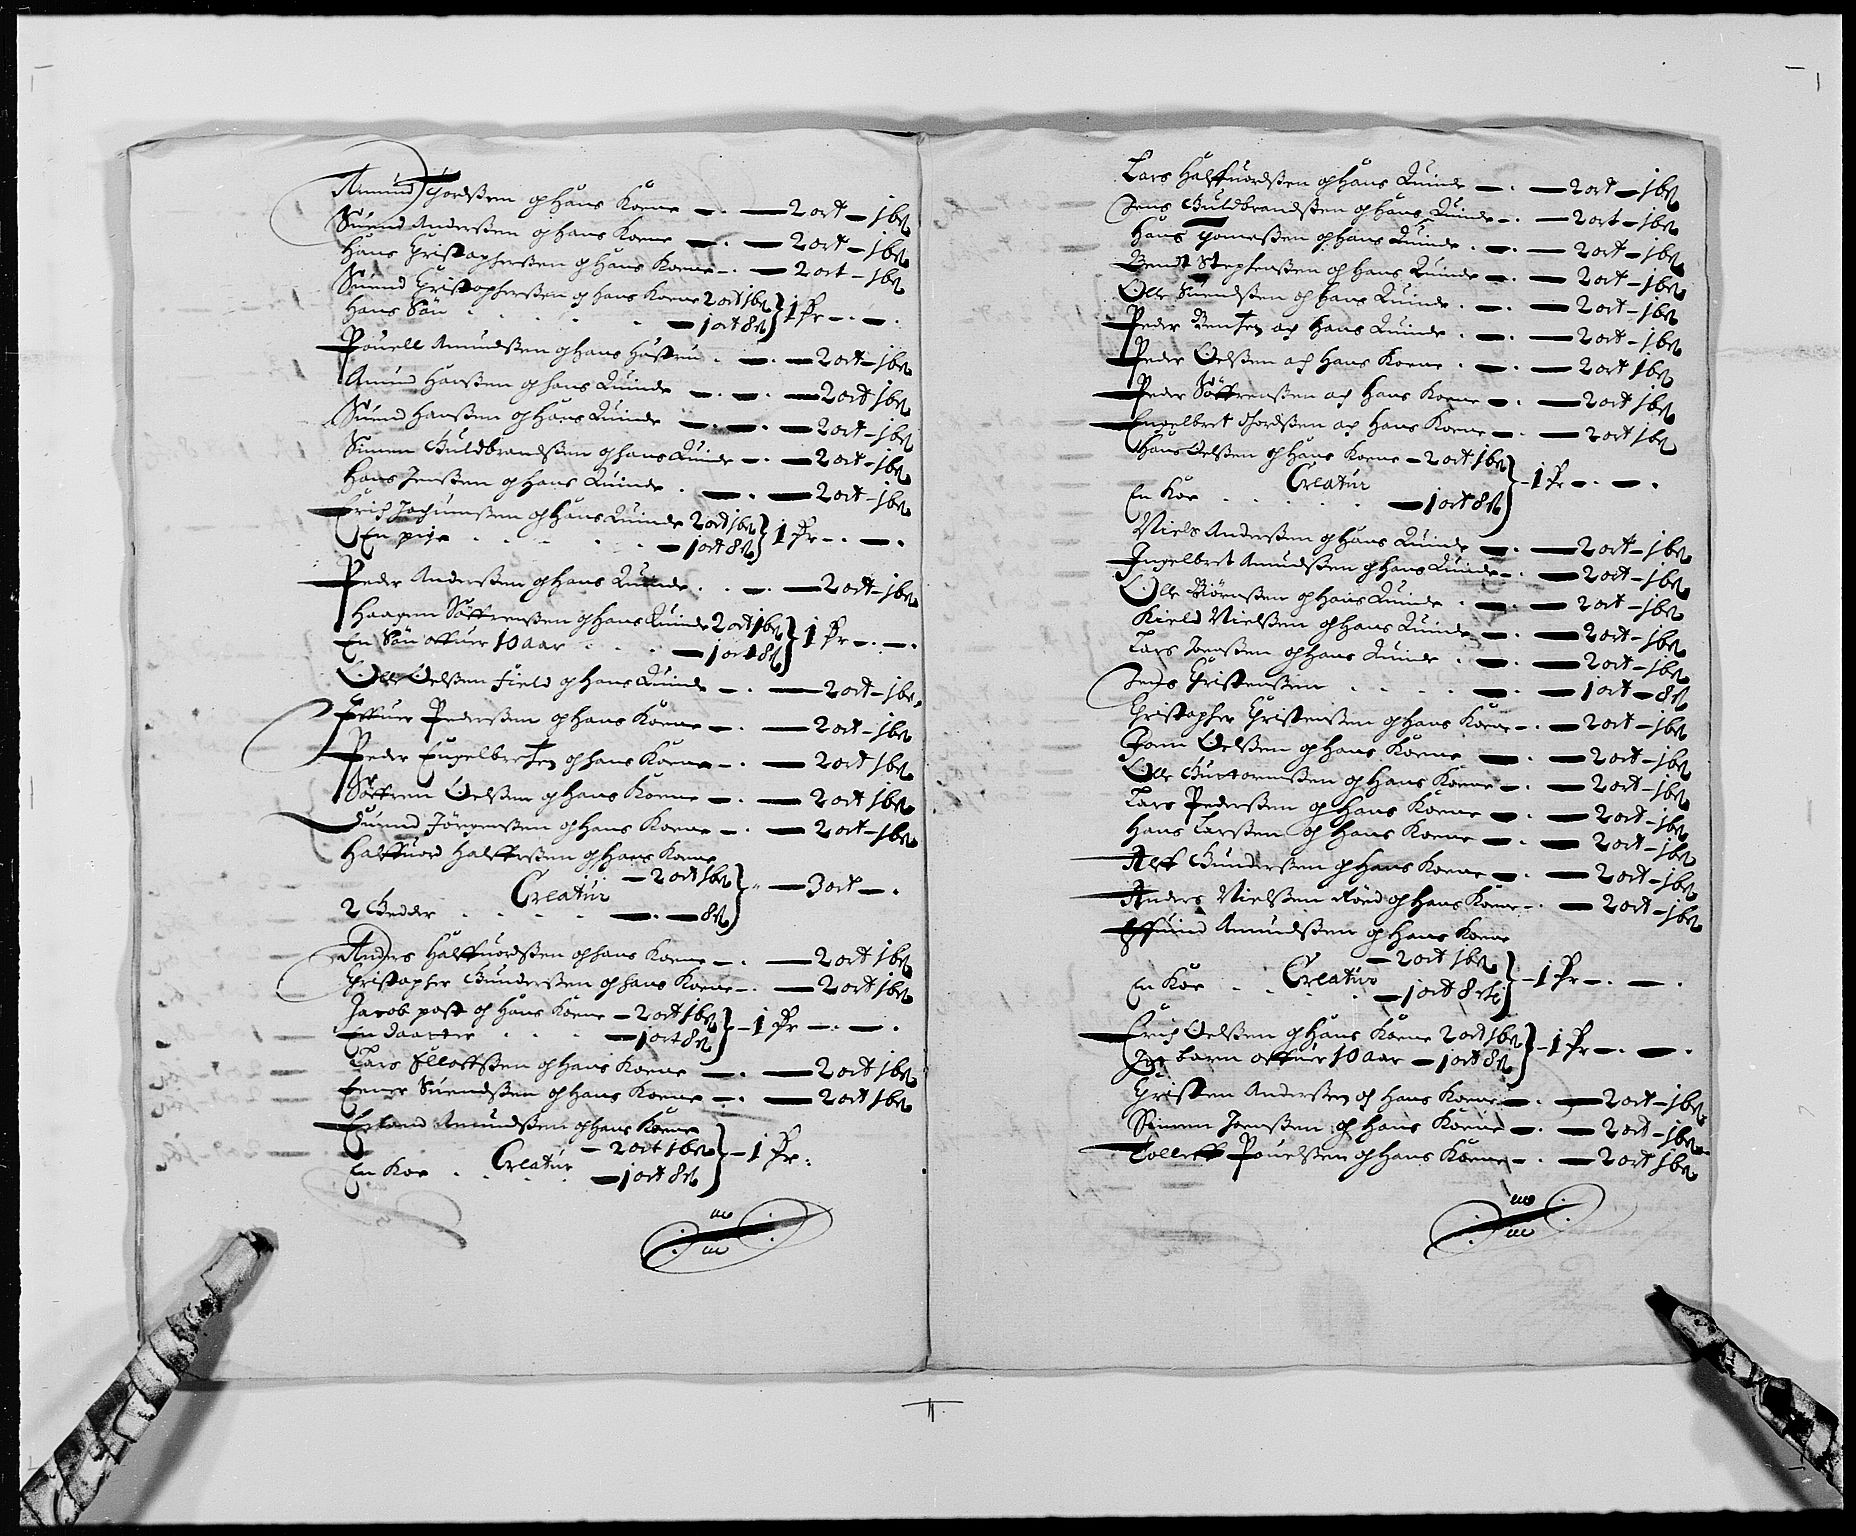 Amund Thordßen og Hans Kone — 2 ort — 16 ß
Suend Anderßen og Hans Kone — 2 ort — 16 ß
Hans Christopherßen og Hans Kone — 2 ort — 16 ß
Suend Christopherßen og Hans Kone 2 ort 16 ß } 1 Rdr
Hans Søn — 1 ort 8 ß
Pouell Amundßen og Hans Hustru — 2 ort — 16 ß
Amund Hanßen og Hans Quinde — 2 ort 16 ß
Suend Hanßen og Hans Quinde — 2 ort — 16 ß
Simen Guldbrandßen og Hans Quinde — 2 ort — 16 ß
Hans Jenßen og Hans Quinde — 2 ort — 16 ß
Erich Jochumßen og Hans Quinde 2 ort 16 ß } 1 Rdr
En pige — 1 ort 8 ß
Peder Anderßen og Hans Quinde — 2 ort — 16 ß
Haagen Søffrenßen og Hans Quinde 2 ort 16 ß } 1 Rdr
En Søn offuer 10 aar — 1 ort 8 ß
Olle Oelßen Field og Hans Quinde — 2 ort — 16 ß
Effuer Pederßen og Hans Kone — 2 ort — 16 ß
Peder Engelbretßen og Hans Kone — 2 ort 16 ß
Søffren Oelßen og Hans Kone — 2 ort 16 ß
Suend Jørgenßen og Hans Kone — 2 ort — 16 ß
Halffuord Halfferßen og Hans Kone
Creatur — 2 ort 16 ß } — 3 ort
2 Gedder — 8 ß
Anders Halffuordßen og Hans Kone — 2 ort 16 ß
Christopher Gunderßen og Hans Kone — 2 ort 16 ß
Jacob post og Hans Kone — 2 ort 16 ß } — 1 Rdr
En daatter — 1 ort 8 ß
Lars Elloffßen og Hans Kone — 2 ort 16 ß
Ener Suendßen og Hans Kone — 2 ort 16 ß
Erland Amundßen og Hans Kone
Creatur — 2 ort 16 ß } — 1 Rdr
En Koe — 1 ort 8 ß
Lars Halffuordßen og Hans Quinde — 2 ort — 16 ß
Jens Guldbrandßen og Hans Quinde — 2 ort — 16 ß
Hans Thomeßen og Hans Quinde — 2 ort — 16 ß
Bendt Stephenßen og Hans Quinde — 2 ort — 16 ß
Olle Suendßen og Hans Quinde — 2 ort — 16 ß
Peder Bentßen og Hans Quinde — 2 ort — 16 ß
Peder Oelßen og Hans Kone — 2 ort 16 ß
Peder Søffrenßen og Hans Kone — 2 ort 16 ß
Engelbret Thordßen og Hans Kone — 2 ort 16 ß
Hans Oelßen og Hans Kone — 2 ort 16 ß } — 1 Rdr
Creatur
En Koe — 1 ort 8 ß
Niels Anderßen og Hans Quinde — 2 ort — 16 ß
Ingelbret Amundßen og Hans Quinde — 2 ort — 16 ß
Olle Biørnßen og Hans Quinde — 2 ort — 16 ß
Kield Nielßen og Hans Quinde — 2 ort — 16 ß
Lars Joenßen og Hans Quinde — 2 ort — 16 ß
Jens Christenßen — 1 ort — 8 ß
Christopher Christenßen og Hans Kone — 2 ort — 16 ß
Joen Oelßen og Hans Kone — 2 ort — 16 ß
Olle Guttormßen og Hans Kone — 2 ort — 16 ß
Lars Pederßen og Hans Kone — 2 ort — 16 ß
Hans Larßen og Hans Kone — 2 ort — 16 ß
Alf Gunderßen og Hans Kone — 2 ort — 16 ß
Anders Nielßen Røed og Hans Kone — 2 ort — 16 ß
Effuind Amundßen og Hans Kone
Creatur — 2 ort 16 ß } — 1 Rdr
En Koe — 1 ort 8 ß
Erich Oelßen og Hans Kone 2 ort 16 ß } — 1 Rdr
Et barn offuer 10 aar — 1 ort 8 ß
Christen Anderßen og Hans Kone — 2 ort — 16 ß
Simen Joenßen og Hans Kone — 2 ort — 16 ß
Tolleff Pouelßen og Hans Kone — 2 ort 16 ß